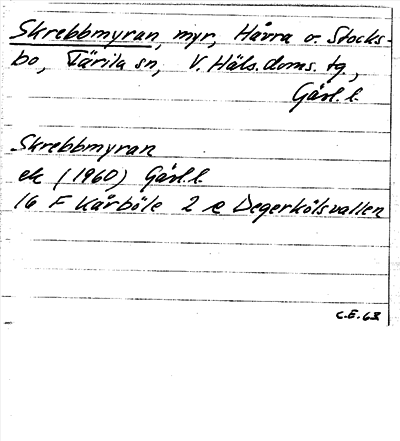 Skrebbmyran, myr, Håvra o. Stocks-
bo, Färila sn, V. Häls. doms. tg,
Gävl. l.
Skrebbmyran
ek (1960) Gävl. l.
16 F Kårböle 2 e Degerkölsvallen
C.E. 63